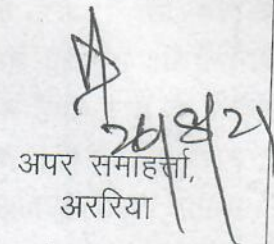 26/8/21
अपर समाहर्त्ता,
अररिया